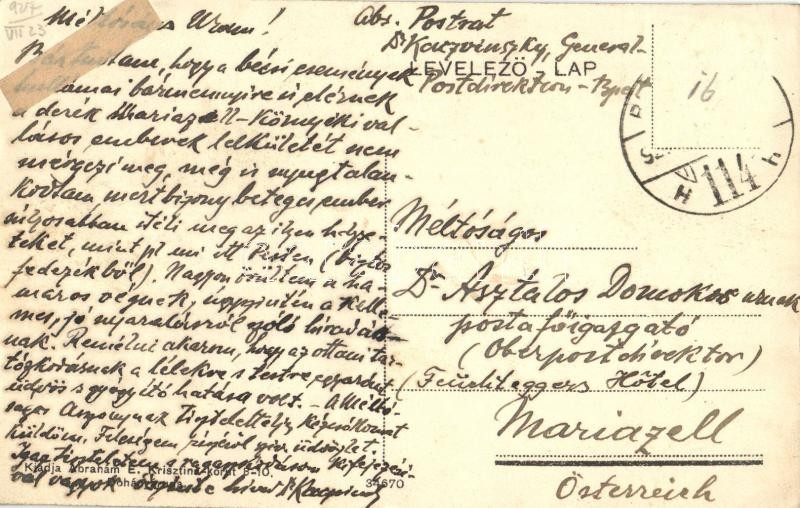 927
VII 23
Méltóságos Uram!
Bár tudtam, hogy a bécsi események
hullámai bármennyire is elérnek
a derék Mariazell-környéki val-
lásos emberek lelkületét nem
mérgezi meg, még is nyugtalan-
kodtam, mert bizony beteges ember
súlyosabban ítéli meg az ilyen helyze-
teket, mint pl. mi itt Pesten (biztos
fedezékből). Nagyon örültem a ha-
maros végnek, ugyszintén a kelle-
mes, jó nyaralásról szóló híradás-
nak. Remélni akarom, hogy az ottani tar-
tózkodásnak a lélekre s testre egyaránt
üdvös s gyógyító hatása volt. - A Méltó-
ságos Asszonynak tiszteletteljes kézcsókomat
küldöm. Feleségem
Igaz tiszteletem s nagyrabecsülésem kifejezésé-
vel vagyok híve Dr Kaczvinszky
Kiadja Ábrahám E. Krisztina-körút 8-10.
Dohánytőzsde
34670
Abs. Postrat
Dr Kaczvinszky, General-
LEVELEZŐ LAP
Postdirektion - Bpest
16
114
Méltóságos
Dr Asztalos Domokos urnak
postafőigazgató
(Oberpostdirektor)
(Feuchteggers Hôtel)
Mariazell
Österreich